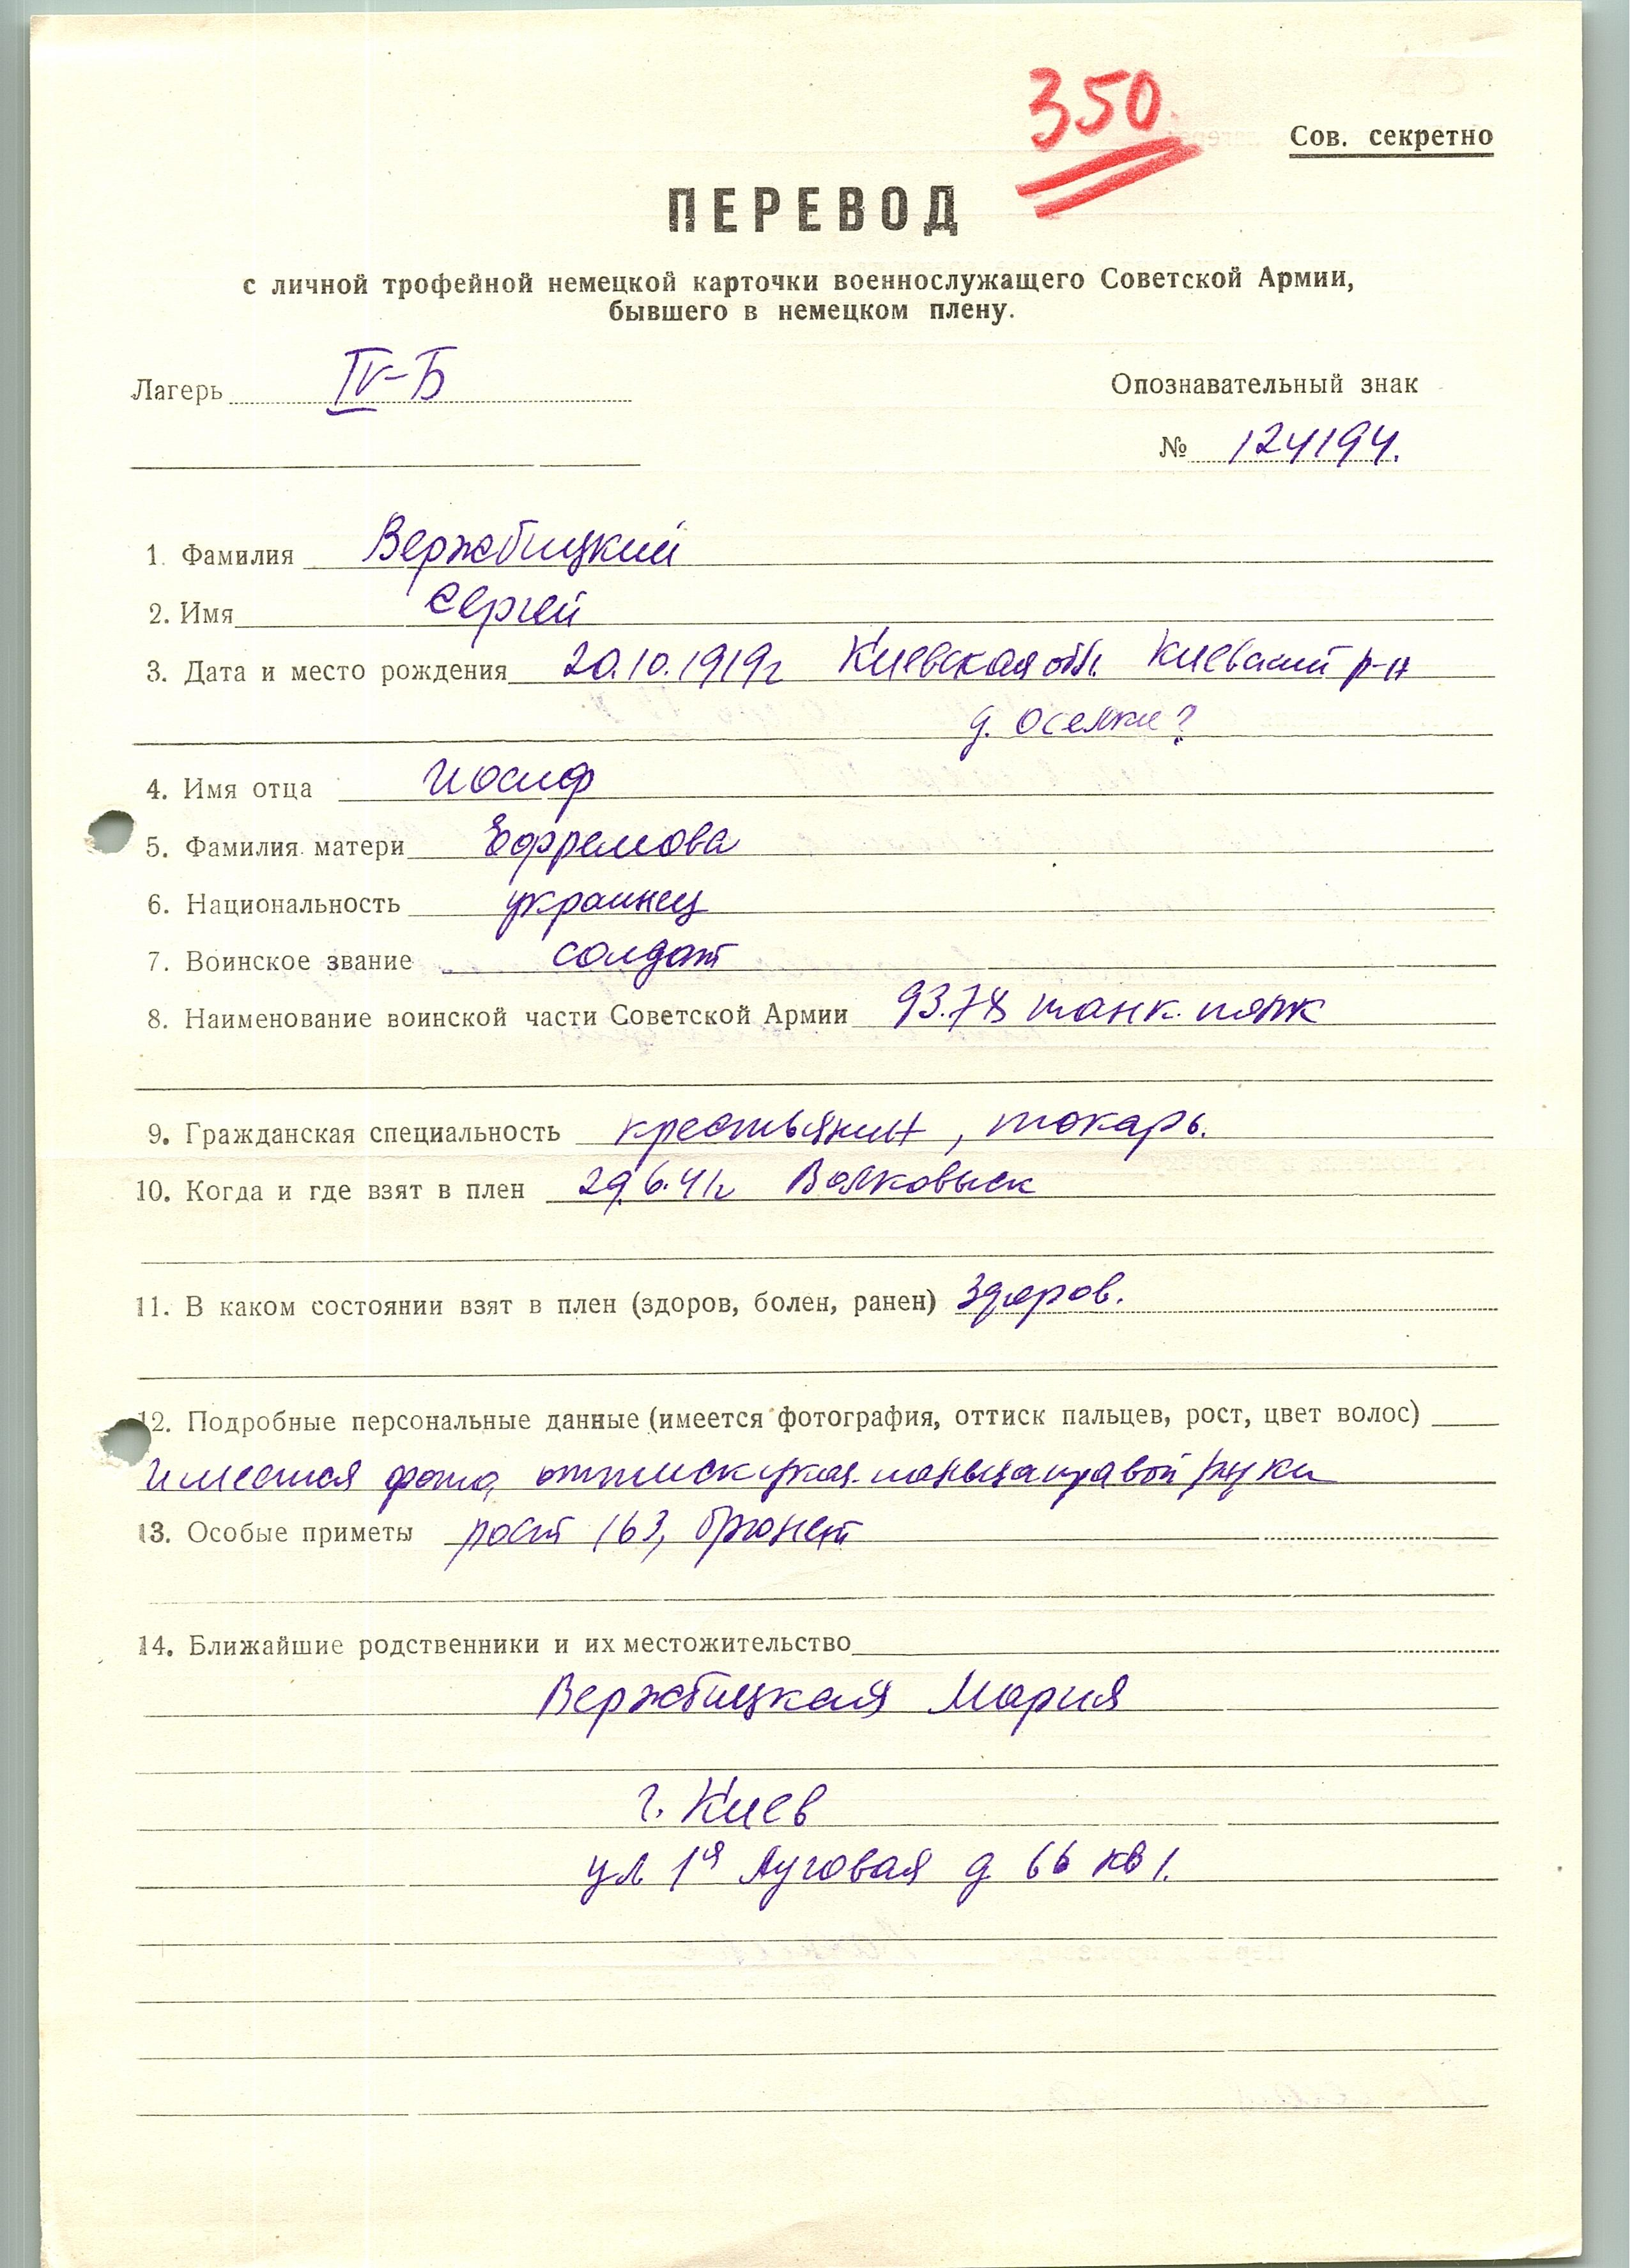 350
Сов. секретно
ПЕРЕВОД
с личной трофейной немецкой карточки военнослужащего Советской Армии,
бывшего в немецком плену.
Лагерь IV-Б
Опознавательный знак
№ 124194.
1. Фамилия Вержбицкий
2. Имя Сергей
3. Дата и место рождения 20.10.1919г Киевская обл. Киевский р-н
д. Оселки?
4. Имя отца Иосиф
5. Фамилия матери Ефремова
6. Национальность украинец
7. Воинское звание солдат
8. Наименование воинской части Советской Армии танк. полк
9. Гражданская специальность крестьянин, токарь.
10. Когда и где взят в плен 29.6.41г Волковыск
11. В каком состоянии взят в плен (здоров, болен, ранен) Здоров.
12. Подробные персональные данные (имеется фотография, оттиск пальцев, рост, цвет волос)
имеется фото, оттиск указ. пальца правой руки
13. Особые приметы рост 163, брюнет
14. Ближайшие родственники и их местожительство
Вержбицкая Мария
г. Киев
ул 1я Луговая д 66 кв 1.